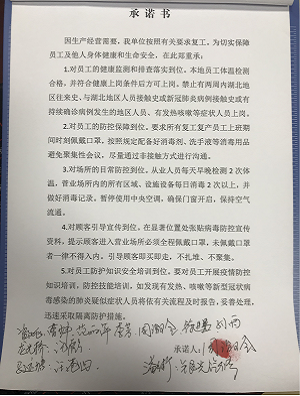 承诺书
因生产经营需要，我单位按照有关要求复工。为切实保障
员工及他人身体健康和生命安全，在此郑重承：
1.对员工的健康监测和排查落实到位。本地员工体温检测
合格，并符合健康上岗条件后方可上岗。禁止有两周内湖北地
区往来史、与湖北地区人员接触史或新冠肺炎病例接触史或有
持续确诊病例发生的地区人员、有发热咳嗽等症状人员上岗。
2.对员工的防控保障到位。要求所有复工复产员工上班期
间时刻佩戴口罩，按照规定配备好消毒剂、洗手液等消毒用品
避免聚集性会议，尽量通过非接触方式进行沟通。
3.对场所的日常防控到位。从业人员每天早晚检测 2 次体
温，营业场所内的所有区域、设施设备每日消毒 2 次以上，并
做好消毒记录。暂停使用中央空调，确保门窗开启，保持空气
流通。
4.对顾客引导宣传到位。在显著位置处张贴病毒防控宣传
资料，提示顾客进入营业场所必须全程佩戴口罩，未佩戴口罩
者一律不得入内，引导顾客即买即走，不扎堆、不聚集。
5.对员工防护知识安全培训到位。要对员工开展疫情防控
知识培训，防控技能培训，如发现有发热、咳嗽等新型冠状病
毒感染的肺炎疑似症状人员将依有关流程及时报告，妥善处理，
迅速采取隔离防护措施。
承诺人：